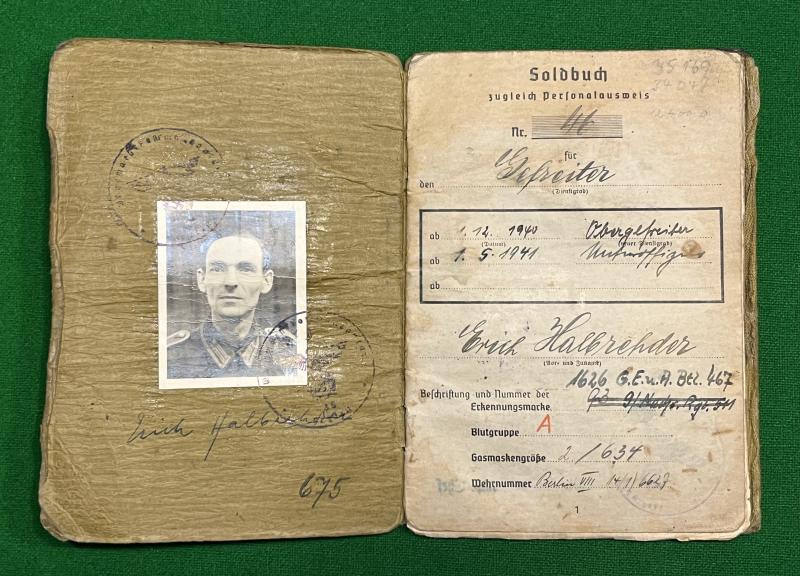 Erich Halbrehder
675
Soldbuch
zugleich Personalausweis
Nr. 46
für
den Gefreiter
(Dienstgrad)
ab 1.12.1940 Obergefreiter
(Datum) (neuer Dienstgrad)
ab 1.5.1941 Unteroffizier
ab
Erich Halbrehder
(Vor- und Zuname)
1626 G.E.u.A. Btl. 467
Beschriftung und Nummer der
Erkennungsmarke
Blutgruppe A
Gasmaskengröße 2 / 634
Wehrnummer Berlin VIII 14/1/6627
1